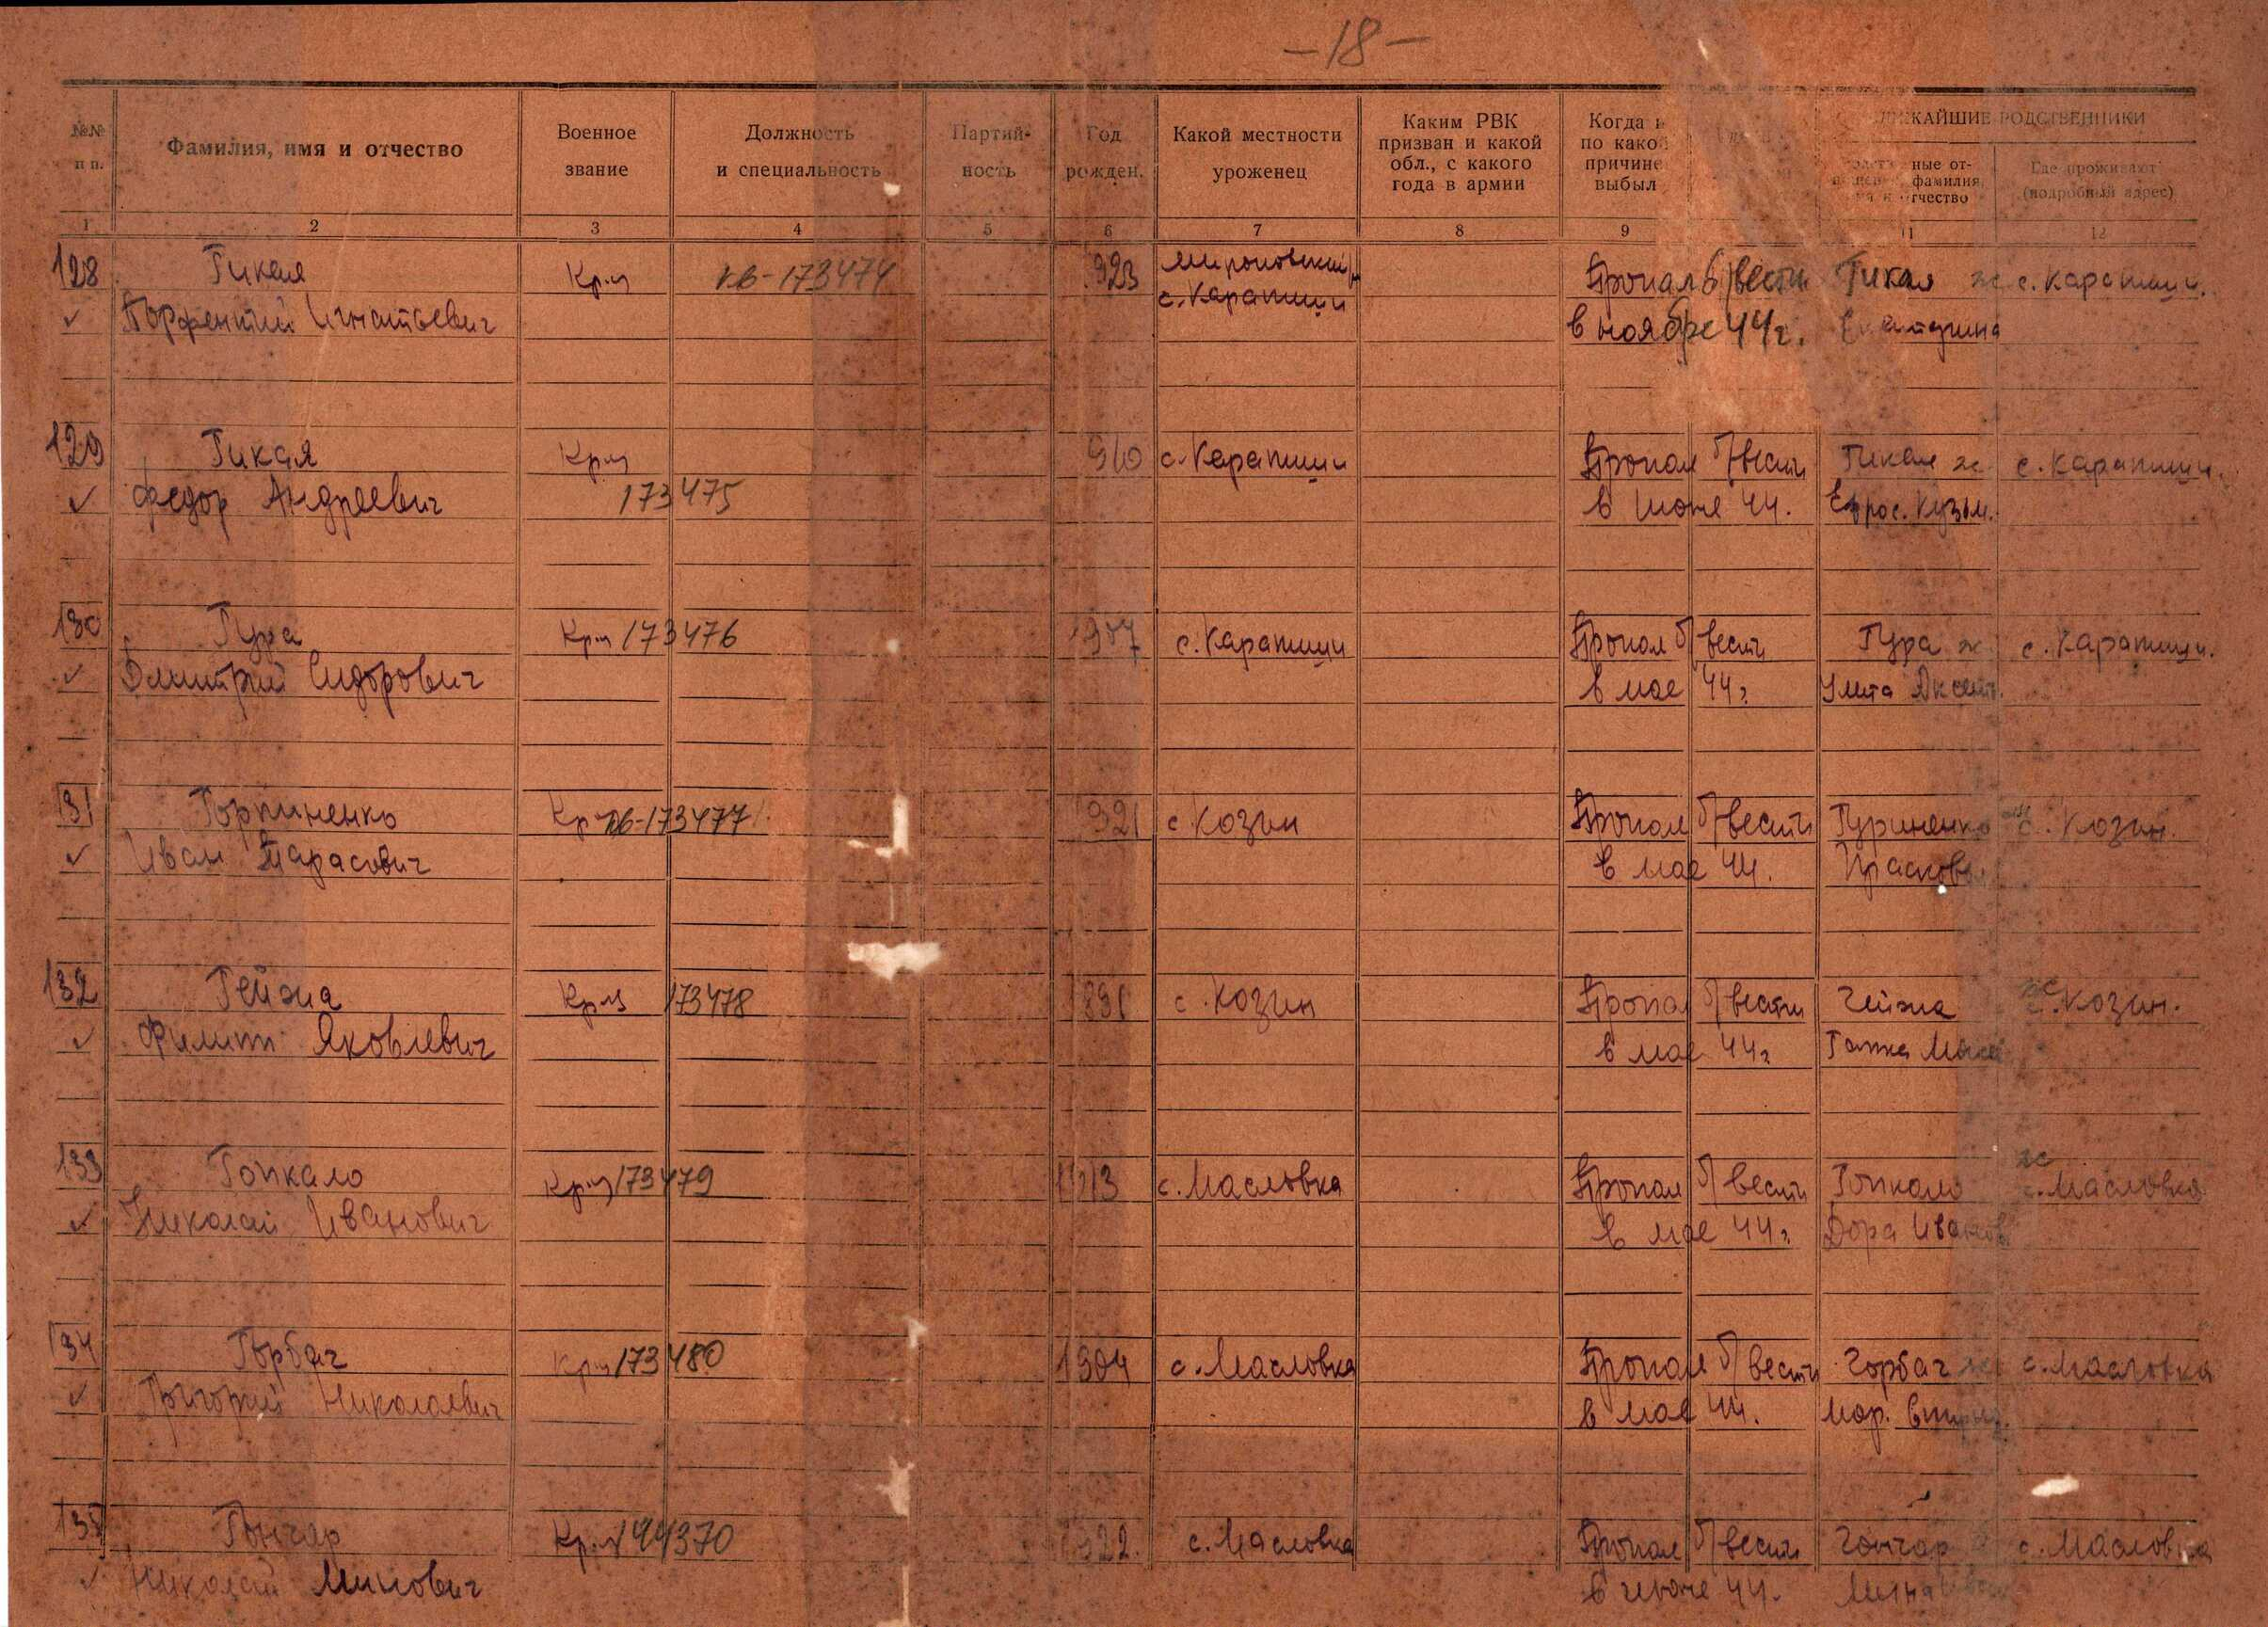 -18-
№№ п п.
Фамилия, имя и отчество
Военное звание
Должность и специальность
Партийность
Год рожден.
Какой местности уроженец
Каким РВК призван и какой обл., с какого года в армии
Когда и по какой причине выбыл
РОДСТВЕННИКИ
Где проживают (подробный адрес)
1 2 3 4 5 6 7 8 9 11 12
128 Гикая Кр-ц 173474 923 Мироновский р Пропал б/вести Гикая ж с. Карапыши.
с. Карапыши
Порфентий Игнатьевич в ноябре 44г. Екатерина
129 Гикая Кр-ц 910 с. Карапыши Пропал б/вести Гикая ж с. Карапыши.
Федор Андреевич 173475 в июне 44. Ефрос. Кузьм.
130 Гура Кр-ц 173476 с. Карапыши Пропал б/вести Гура ж с. Карапыши.
Дмитрий Сидорович в мае 44г. Улита
131 Кр-ц 173477 921 с Козин Пропал б/вести Гуриненко с. Козин.
Иван Тарасович в мае 44. Прасковья
132 Гейжа Кр-ц 173478 1891 с. Козин Пропал б/вести Гейжа ж с. Козин.
Филипп Яковлевич в мае 44г Гапка
133 Гопкало Кр-ц 173479 1913 с. Масловка Пропал б/вести Гопкало ж с. Масловка
Николай Иванович в мае 44г. Дора Иванов.
134 Горбач Кр-ц 173480 1904 с. Масловка Пропал б/вести Горбач ж с. Масловка
Григорий Николаевич в мае 44. Мар.
135 Гончар Кр-ц 194370 922. с. Масловка Пропал б/вести Гончар с. Масловка
Николай Минович в июне 44. Мина